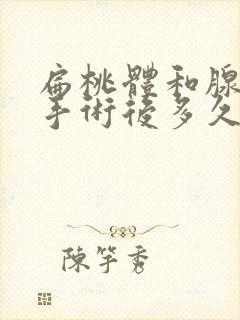 扁桃體和腺
手術後多久
陳竽秀